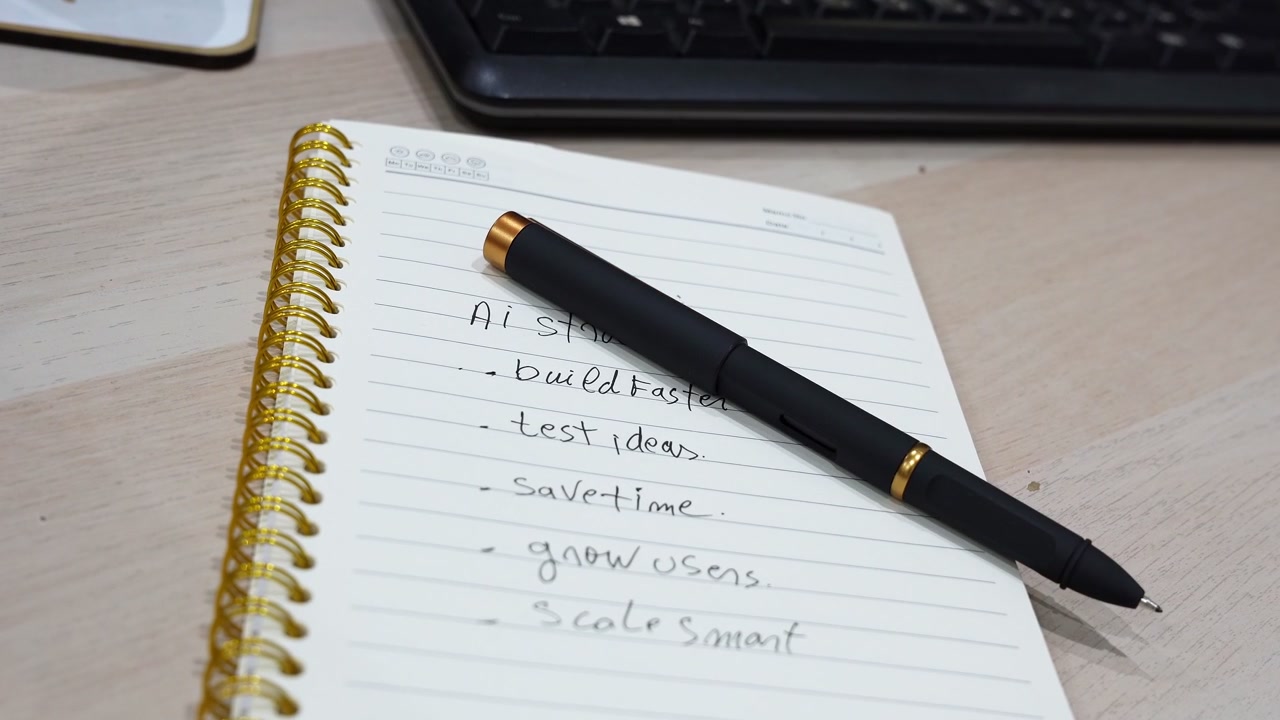 Ai
. build Faster
- test ideas.
- save time.
- grow users.
- scale smart